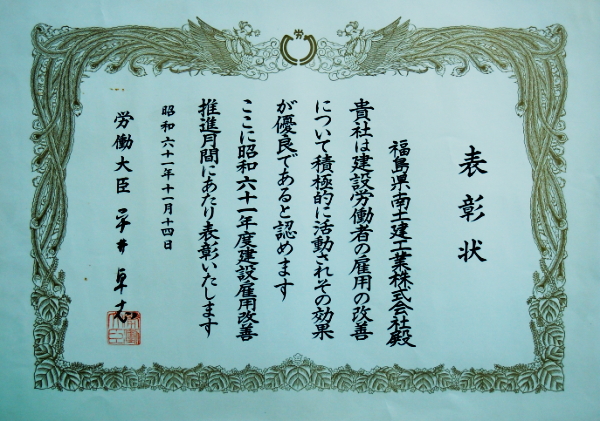 労
表彰状
福島県南土建工業株式会社殿
貴社は建設労働者の雇用の改善
について積極的に活動されその効果
が優良であると認めます
ここに昭和六十一年度建設雇用改善
推進月間にあたり表彰いたします
昭和六十一年十一月十四日
労働大臣 平井卓志